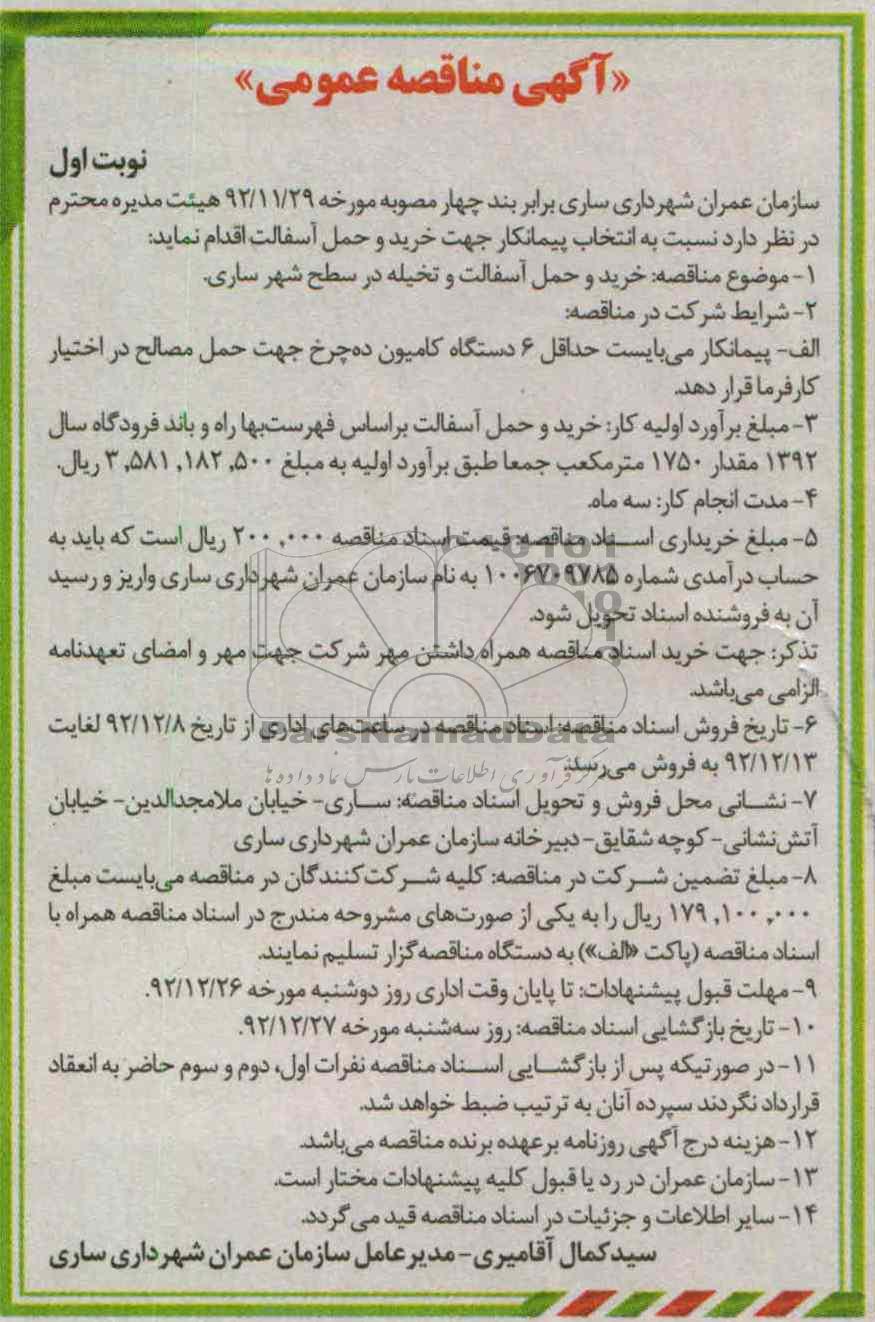 «آگهی مناقصه عمومی»
نوبت اول
سازمان عمران شهرداری ساری برابر بند چهار مصوبه مورخه ۹۲/۱۱/۲۹ هیئت مدیره محترم
در نظر دارد نسبت به انتخاب پیمانکار جهت خرید و حمل آسفالت اقدام نماید:
۱- موضوع مناقصه: خرید و حمل آسفالت و تخیله در سطح شهر ساری.
۲- شرایط شرکت در مناقصه:
الف- پیمانکار می‌بایست حداقل ۶ دستگاه کامیون ده‌چرخ جهت حمل مصالح در اختیار
کارفرما قرار دهد.
۳- مبلغ برآورد اولیه کار: خرید و حمل آسفالت براساس فهرست‌بها راه و باند فرودگاه سال
۱۳۹۲ مقدار ۱۷۵۰ مترمکعب جمعا طبق برآورد اولیه به مبلغ ۳,۵۸۱,۱۸۲,۵۰۰ ریال.
۴- مدت انجام کار: سه ماه.
۵- مبلغ خریداری اسناد مناقصه: قیمت اسناد مناقصه ۲۰۰,۰۰۰ ریال است که باید به
حساب درآمدی شماره ۱۰۰۶۷۰۹۷۸۵ به نام سازمان عمران شهرداری ساری واریز و رسید
آن به فروشنده اسناد تحویل شود.
تذکر: جهت خرید اسناد مناقصه همراه داشتن مهر شرکت جهت مهر و امضای تعهدنامه
الزامی می‌باشد.
۶- تاریخ فروش اسناد مناقصه: اسناد مناقصه در ساعت‌های اداری از تاریخ ۹۲/۱۲/۸ لغایت
ParsNamadData
۹۲/۱۲/۱۳ به فروش می‌رسد.
گردآوری اطلاعات پارس نماد داده ها
۷- نشانی محل فروش و تحویل اسناد مناقصه: ساری- خیابان ملامجدالدین- خیابان
آتش‌نشانی- کوچه شقایق- دبیرخانه سازمان عمران شهرداری ساری
۸- مبلغ تضمین شرکت در مناقصه: کلیه شرکت‌کنندگان در مناقصه می‌بایست مبلغ
۱۷۹,۱۰۰,۰۰۰ ریال را به یکی از صورت‌های مشروحه مندرج در اسناد مناقصه همراه با
اسناد مناقصه (پاکت «الف») به دستگاه مناقصه‌گزار تسلیم نمایند.
۹- مهلت قبول پیشنهادات: تا پایان وقت اداری روز دوشنبه مورخه ۹۲/۱۲/۲۶.
۱۰- تاریخ بازگشایی اسناد مناقصه: روز سه‌شنبه مورخه ۹۲/۱۲/۲۷.
۱۱- در صورتیکه پس از بازگشایی اسناد مناقصه نفرات اول، دوم و سوم حاضر به انعقاد
قرارداد نگردند سپرده آنان به ترتیب ضبط خواهد شد.
۱۲- هزینه درج آگهی روزنامه برعهده برنده مناقصه می‌باشد.
۱۳- سازمان عمران در رد یا قبول کلیه پیشنهادات مختار است.
۱۴- سایر اطلاعات و جزئیات در اسناد مناقصه قید می‌گردد.
سیدکمال آقامیری- مدیرعامل سازمان عمران شهرداری ساری